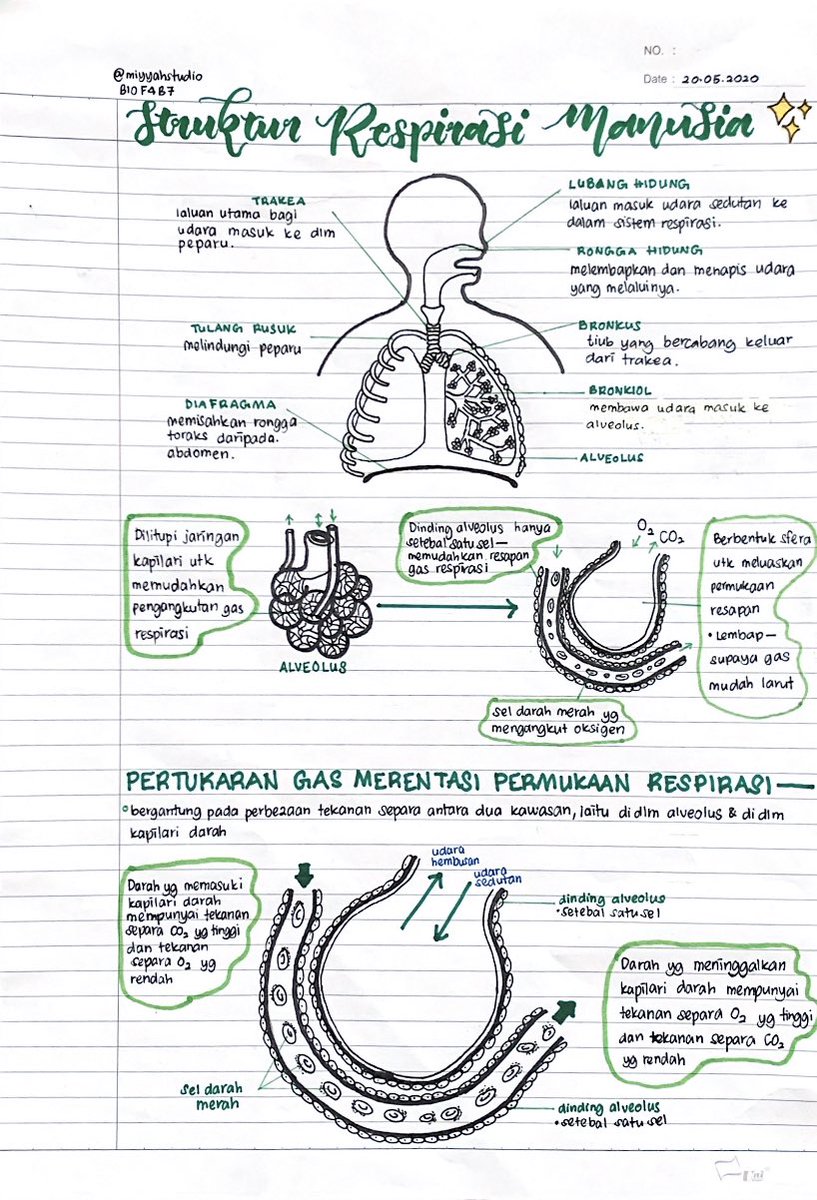 NO. :
Date : 20.05.2020
@miyyahstudio
BIO F4 B7
Struktur Respirasi Manusia
TRAKEA
laluan utama bagi
udara masuk ke dlm
peparu.
LUBANG HIDUNG
laluan masuk udara sedutan ke
dalam sistem respirasi.
RONGGA HIDUNG
melembapkan dan menapis udara
yang melaluinya.
TULANG RUSUK
melindungi peparu
BRONKUS
tiub yang bercabang keluar
dari trakea.
DIAFRAGMA
memisahkan rongga
toraks daripada
abdomen.
BRONKIOL
membawa udara masuk ke
alveolus.
ALVEOLUS
Diliputi jaringan
kapilari utk
memudahkan
pengangkutan gas
respirasi
ALVEOLUS
Dinding alveolus hanya
setebal satu sel—
memudahkan resapan
gas respirasi
O2
CO2
Berbentuk sfera
utk meluaskan
permukaan
resapan
• Lembap—
supaya gas
mudah larut
sel darah merah yg
mengangkut oksigen
PERTUKARAN GAS MERENTASI PERMUKAAN RESPIRASI—
° bergantung pada perbezaan tekanan separa antara dua kawasan, iaitu di dlm alveolus & di dlm
kapilari darah
udara
hembusan
udara
sedutan
Darah yg memasuki
kapilari darah
mempunyai tekanan
separa CO2 yg tinggi
dan tekanan
separa O2 yg
rendah
dinding alveolus
• setebal satu sel
Darah yg meninggalkan
kapilari darah mempunyai
tekanan separa O2 yg tinggi
dan tekanan separa CO2
yg rendah
sel darah
merah
dinding alveolus
• setebal satu sel